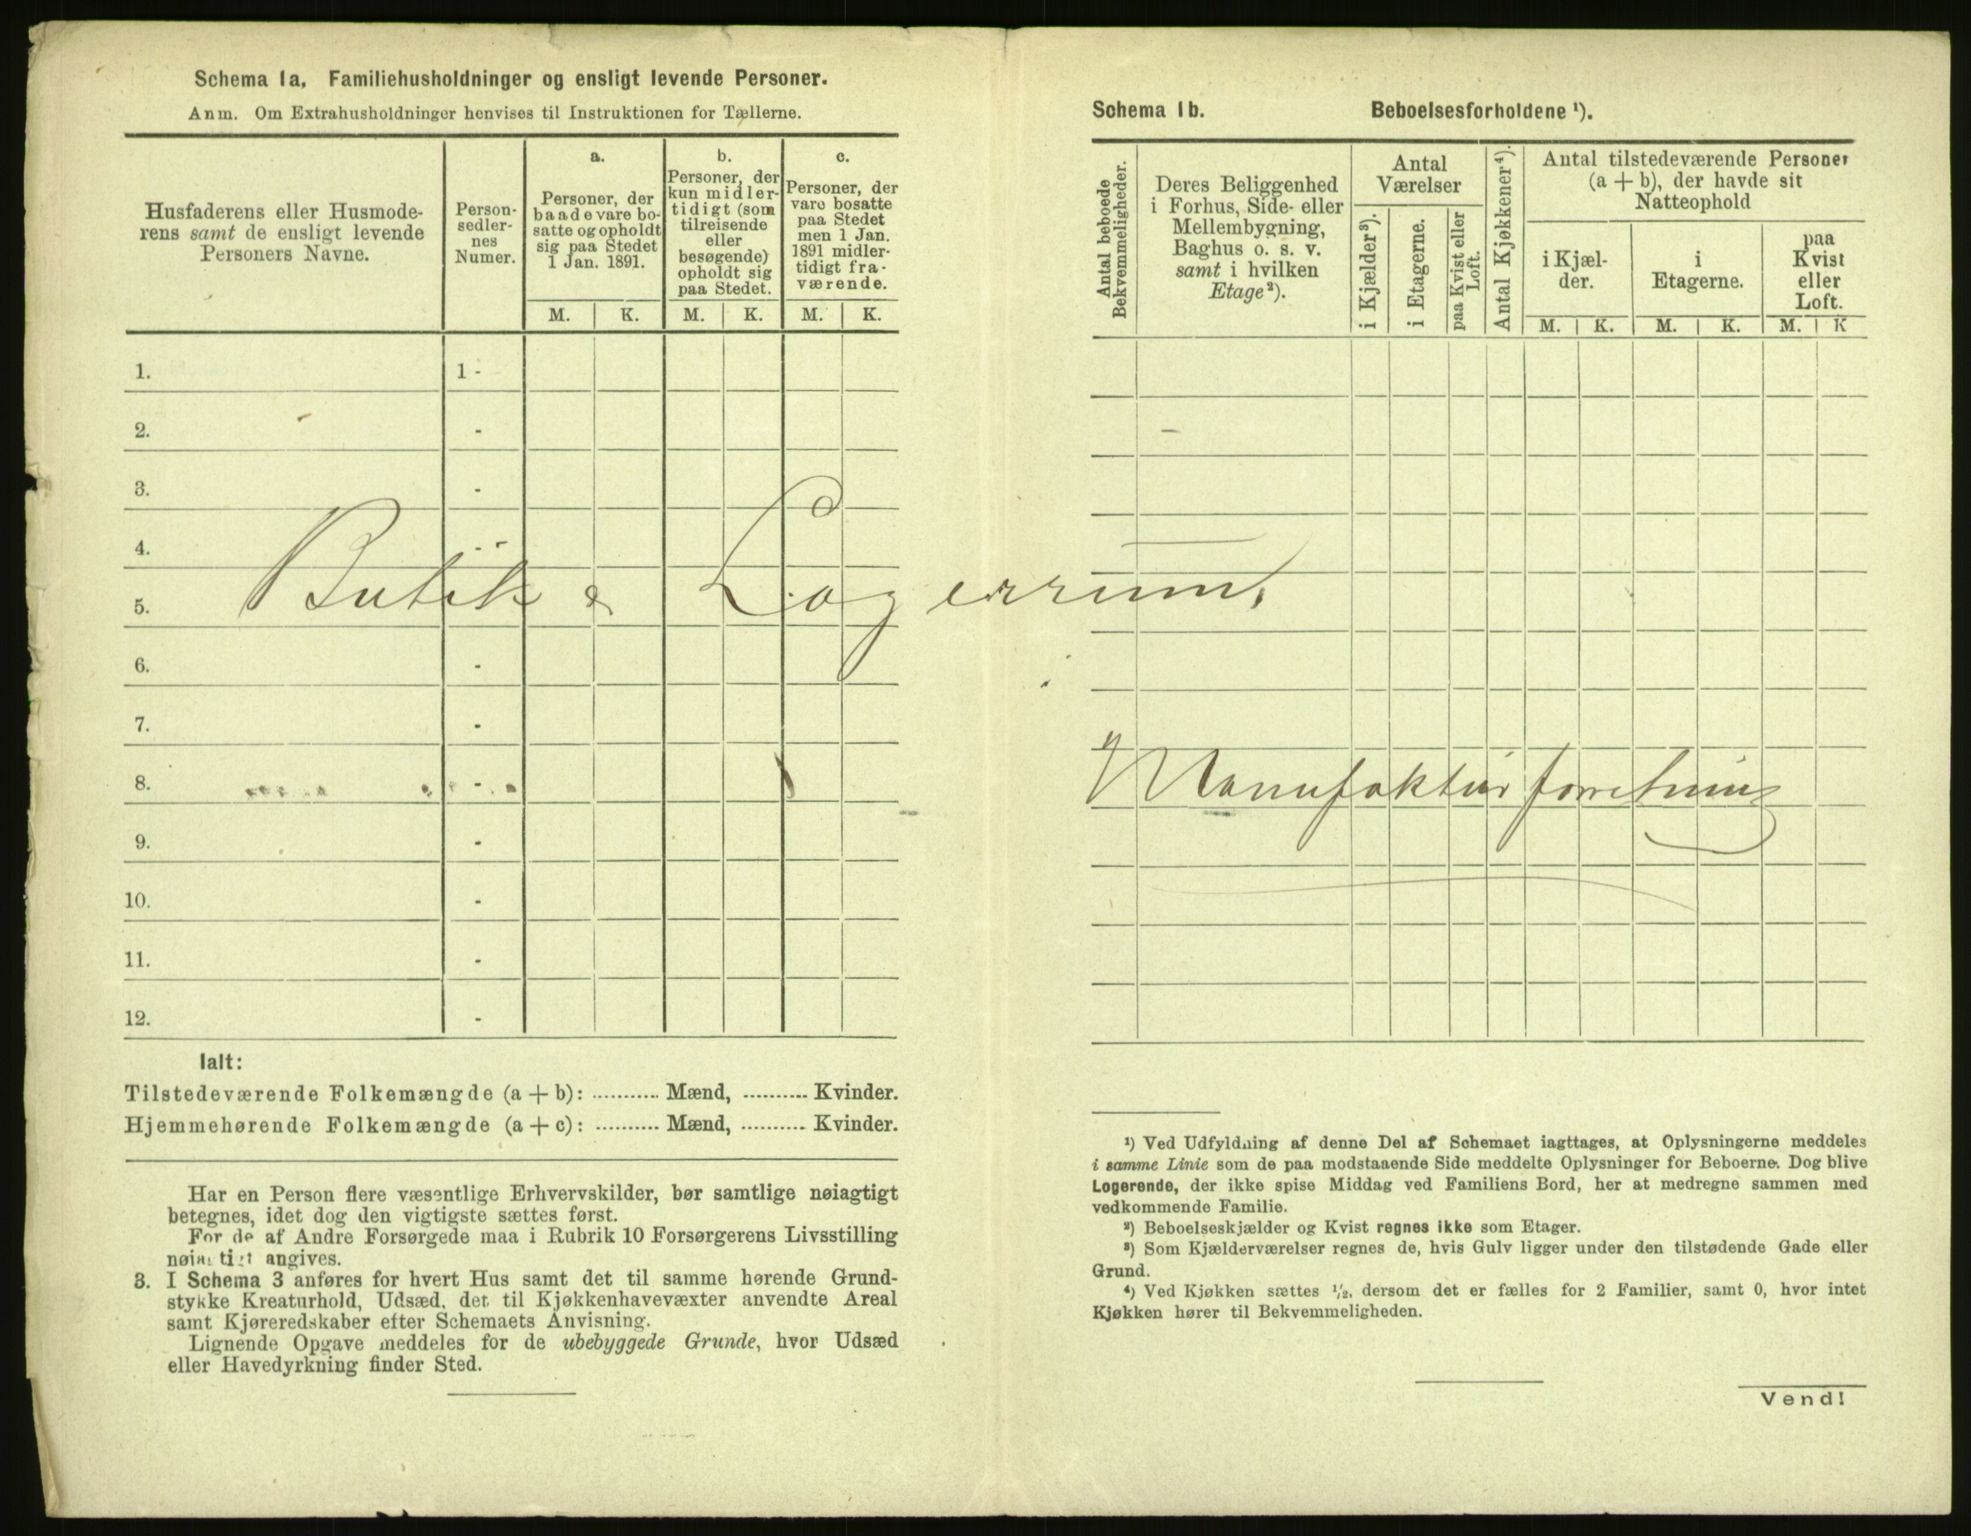 Schema 1a. Familiehusholdninger og ensligt levende Personer.
Anm. Om Extrahusholdninger henvises til Instruktionen for Tællerne.
Husfaderens eller Husmode-
rens samt de ensligt levende
Personers Navne.
Person-
sedler-
nes
Numer.
a.
Personer, der
baade vare bo-
satte og opholdt
sig paa Stedet
1 Jan. 1891.
b.
Personer, der
kun midler-
tidigt (som
tilreisende
eller
besøgende)
opholdt sig
paa Stedet.
c.
Personer, der
vare bosatte
paa Stedet
men 1 Jan.
1891 midler-
tidigt fra-
værende.
M. K. M. K. M. K.
1. 1 -
2. -
3. -
4. -
5.
6. -
7. -
8. -
9. -
10. -
11. -
12. -
Butik & Lagerrum,
Ialt:
Tilstedeværende Folkemængde (a + b): ........... Mænd, ........... Kvinder.
Hjemmehørende Folkemængde (a + c): ........... Mænd, ........... Kvinder.
Har en Person flere væsentlige Erhvervskilder, bør samtlige nøiagtigt
betegnes, idet dog den vigtigste sættes først.
For de af Andre Forsørgede maa i Rubrik 10 Forsørgerens Livsstilling
nøiagtigt angives.
3. I Schema 3 anføres for hvert Hus samt det til samme hørende Grund-
stykke Kreaturhold, Udsæd, det til Kjøkkenhavevæxter anvendte Areal
samt Kjøreredskaber efter Schemaets Anvisning.
Lignende Opgave meddeles for de ubebyggede Grunde, hvor Udsæd
eller Havedyrkning finder Sted.
Schema 1b. Beboelsesforholdene ¹).
Antal beboede
Bekvemmeligheder.
Deres Beliggenhed
i Forhus, Side- eller
Mellembygning,
Baghus o. s. v.
samt i hvilken
Etage²).
Antal
Værelser
i Kjælder³).
i Etagerne.
paa Kvist eller
Loft.
Antal Kjøkkener⁴).
Antal tilstedeværende Personer
(a + b), der havde sit
Natteophold
i Kjæl-
der.
i
Etagerne.
paa
Kvist
eller
Loft.
M. K. M. K. M. K
Manufakturforretning
¹) Ved Udfyldning af denne Del af Schemaet iagttages, at Oplysningerne meddeles
i samme Linie som de paa modstaaende Side meddelte Oplysninger for Beboerne. Dog blive
Logerende, der ikke spise Middag ved Familiens Bord, her at medregne sammen med
vedkommende Familie.
²) Beboelseskjælder og Kvist regnes ikke som Etager.
³) Som Kjælderværelser regnes de, hvis Gulv ligger under den tilstødende Gade eller
Grund.
⁴) Ved Kjøkken sættes ½, dersom det er fælles for 2 Familier, samt 0, hvor intet
Kjøkken hører til Bekvemmeligheden.
Vend!